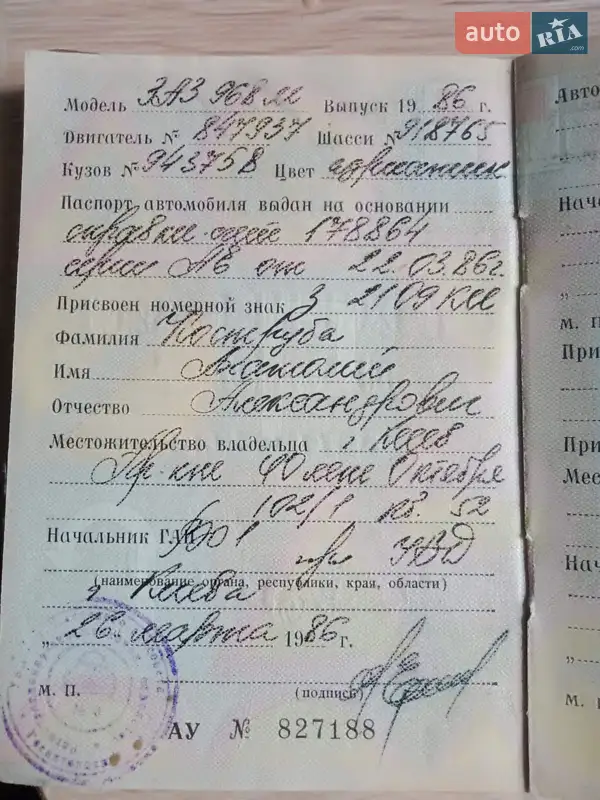 auto RIA .com
Модель ЗАЗ 968 м Выпуск 19 86 г.
Двигатель № 847937 Шасси № 918765
Кузов № 943758 Цвет
Паспорт автомобиля выдан на основании
справки-счёт 178864
серии АБ от 22.03.86г
Присвоен номерной знак З 2109 КИЕ
Фамилия Костгруба
Имя Анатолий
Отчество Александрович
Местожительство владельца г. Киев
Пр-кт 40 лет Октября
102/1 кв. 52
Начальник ГАИ РЭО 1 при УВД
(наименование органа, республики, края, области)
г Киева
„ 26 марта 1986 г.
М. П. (подпись)
АУ № 827188
Авто
Нача
„
м. п
При
При
Мес
Нач
„
м.